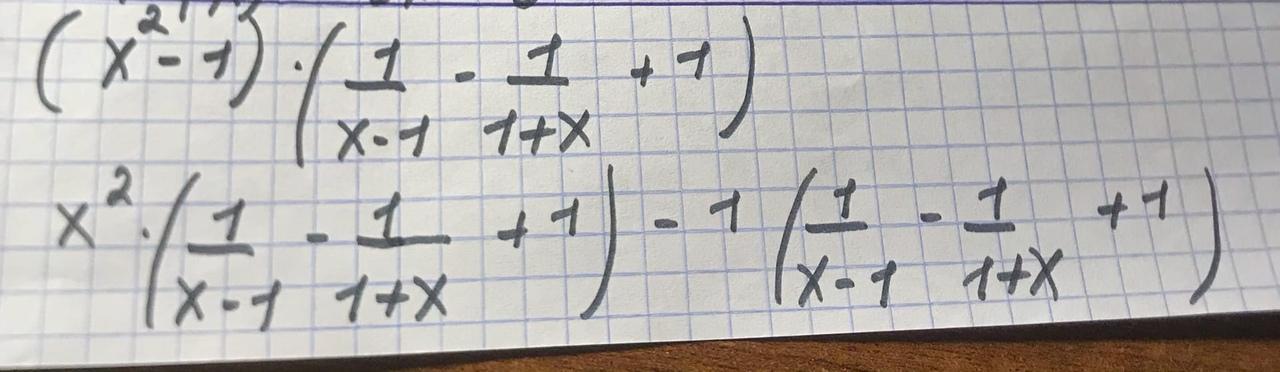 (x²-1)·(1/(x-1) - 1/(1+x) +1)
x²·(1/(x-1) - 1/(1+x) +1) - 1(1/(x-1) - 1/(1+x) +1)